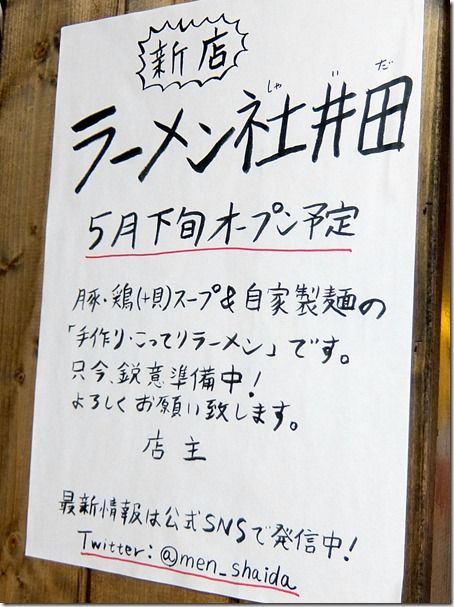 新店
ラーメン社井田
しゃ い だ
5月下旬オープン予定
豚・鶏(+貝)スープ&自家製麺の
「手作り・こってりラーメン」です。
只今、鋭意準備中!
よろしくお願い致します。
店主
最新情報は公式SNSで発信中!
Twitter:@men_shaida